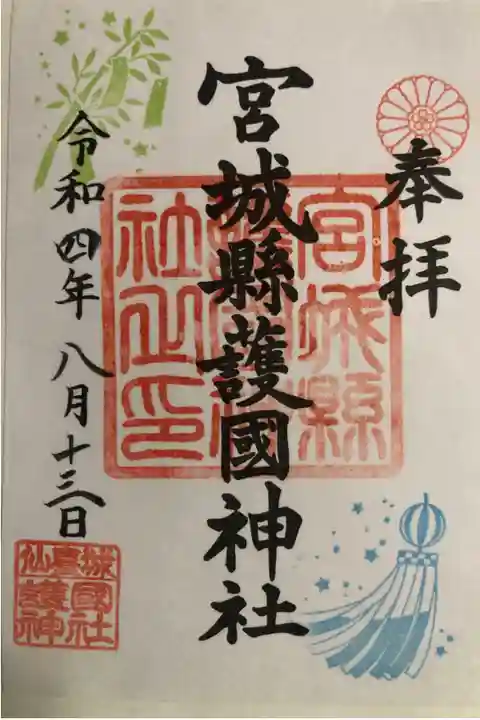 奉拝
宮城縣護國神社
宮城縣護國神社之印
令和四年八月十三日
仙臺城
護國神社